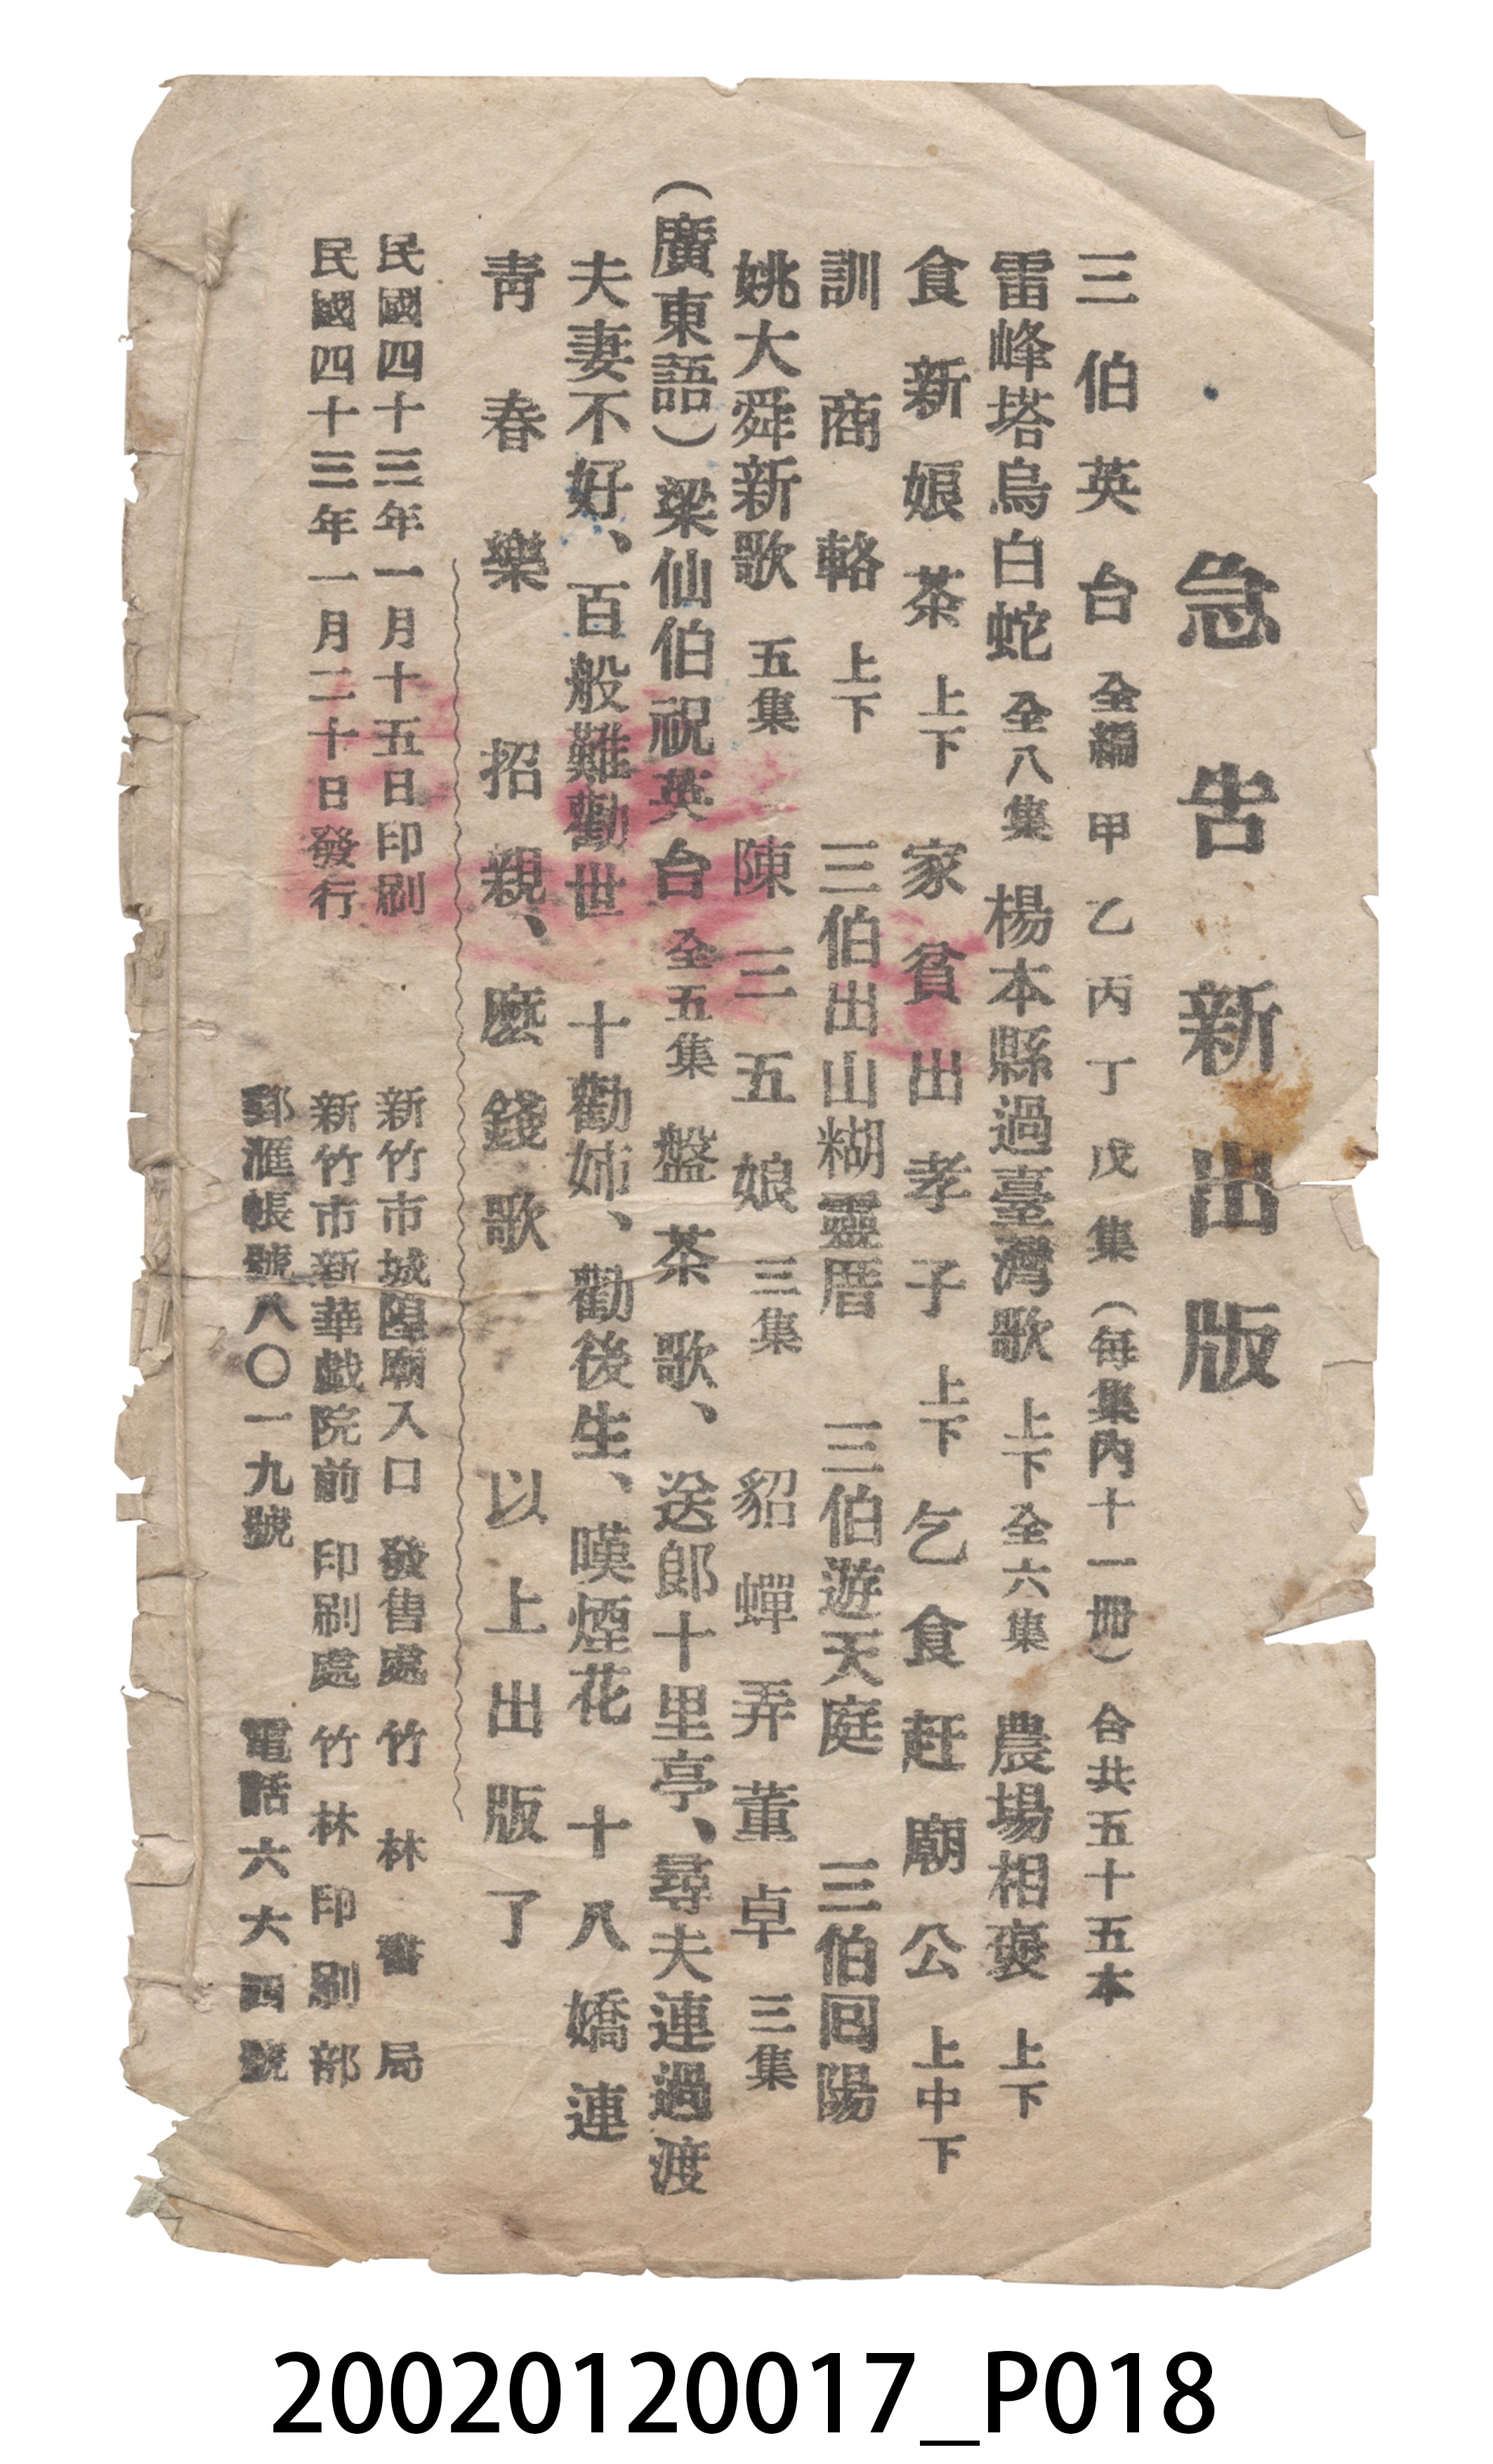 急告新出版
三伯英台 全編 甲乙丙丁戊集（每集內十一冊）合共五十五本
雷峰塔烏白蛇 全八集 楊本縣過臺灣歌 上下全六集 農場相褒 上下
食新娘茶 上下 家貧出孝子 上下 乞食赶廟公 上中下
訓商輅 上下 三伯出山糊靈厝 三伯遊天庭 三伯囘陽
姚大舜新歌 五集 陳三五娘 三集 貂蟬弄董卓 三集
（廣東語）梁仙伯祝英台 全五集 盤茶歌、送郎十里亭、尋夫連過渡
夫妻不好、百般難勸世 十勸姉、勸後生、嘆煙花 十八嬌連
靑春樂 招親、麽錢歌 以上出版了
民國四十三年一月十五日印刷 新竹市城隍廟入口 發售處 竹林書局
民國四十三年一月二十日發行 新竹市新華戯院前 印刷處 竹林印刷部
郵滙帳號八〇一九號 電話六六四號
20020120017_P018